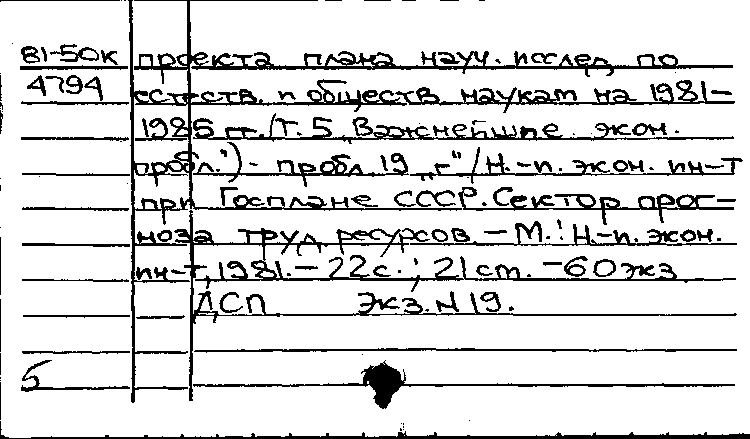 81-50к проекта плана науч. исслед. по
4794 естеств. и обществ. наукам на 1981-
1985 гг. (Т. 5 „Важнейшие экон.
пробл.") - пробл. 19 „г" / Н.-и. экон. ин-т
при Госплане СССР. Сектор прог-
ноза труд. ресурсов. - М.: Н.-и. экон.
ин-т, 1981. - 22 с.; 21 см. - 60 экз
ДСП Экз. N 19.
5